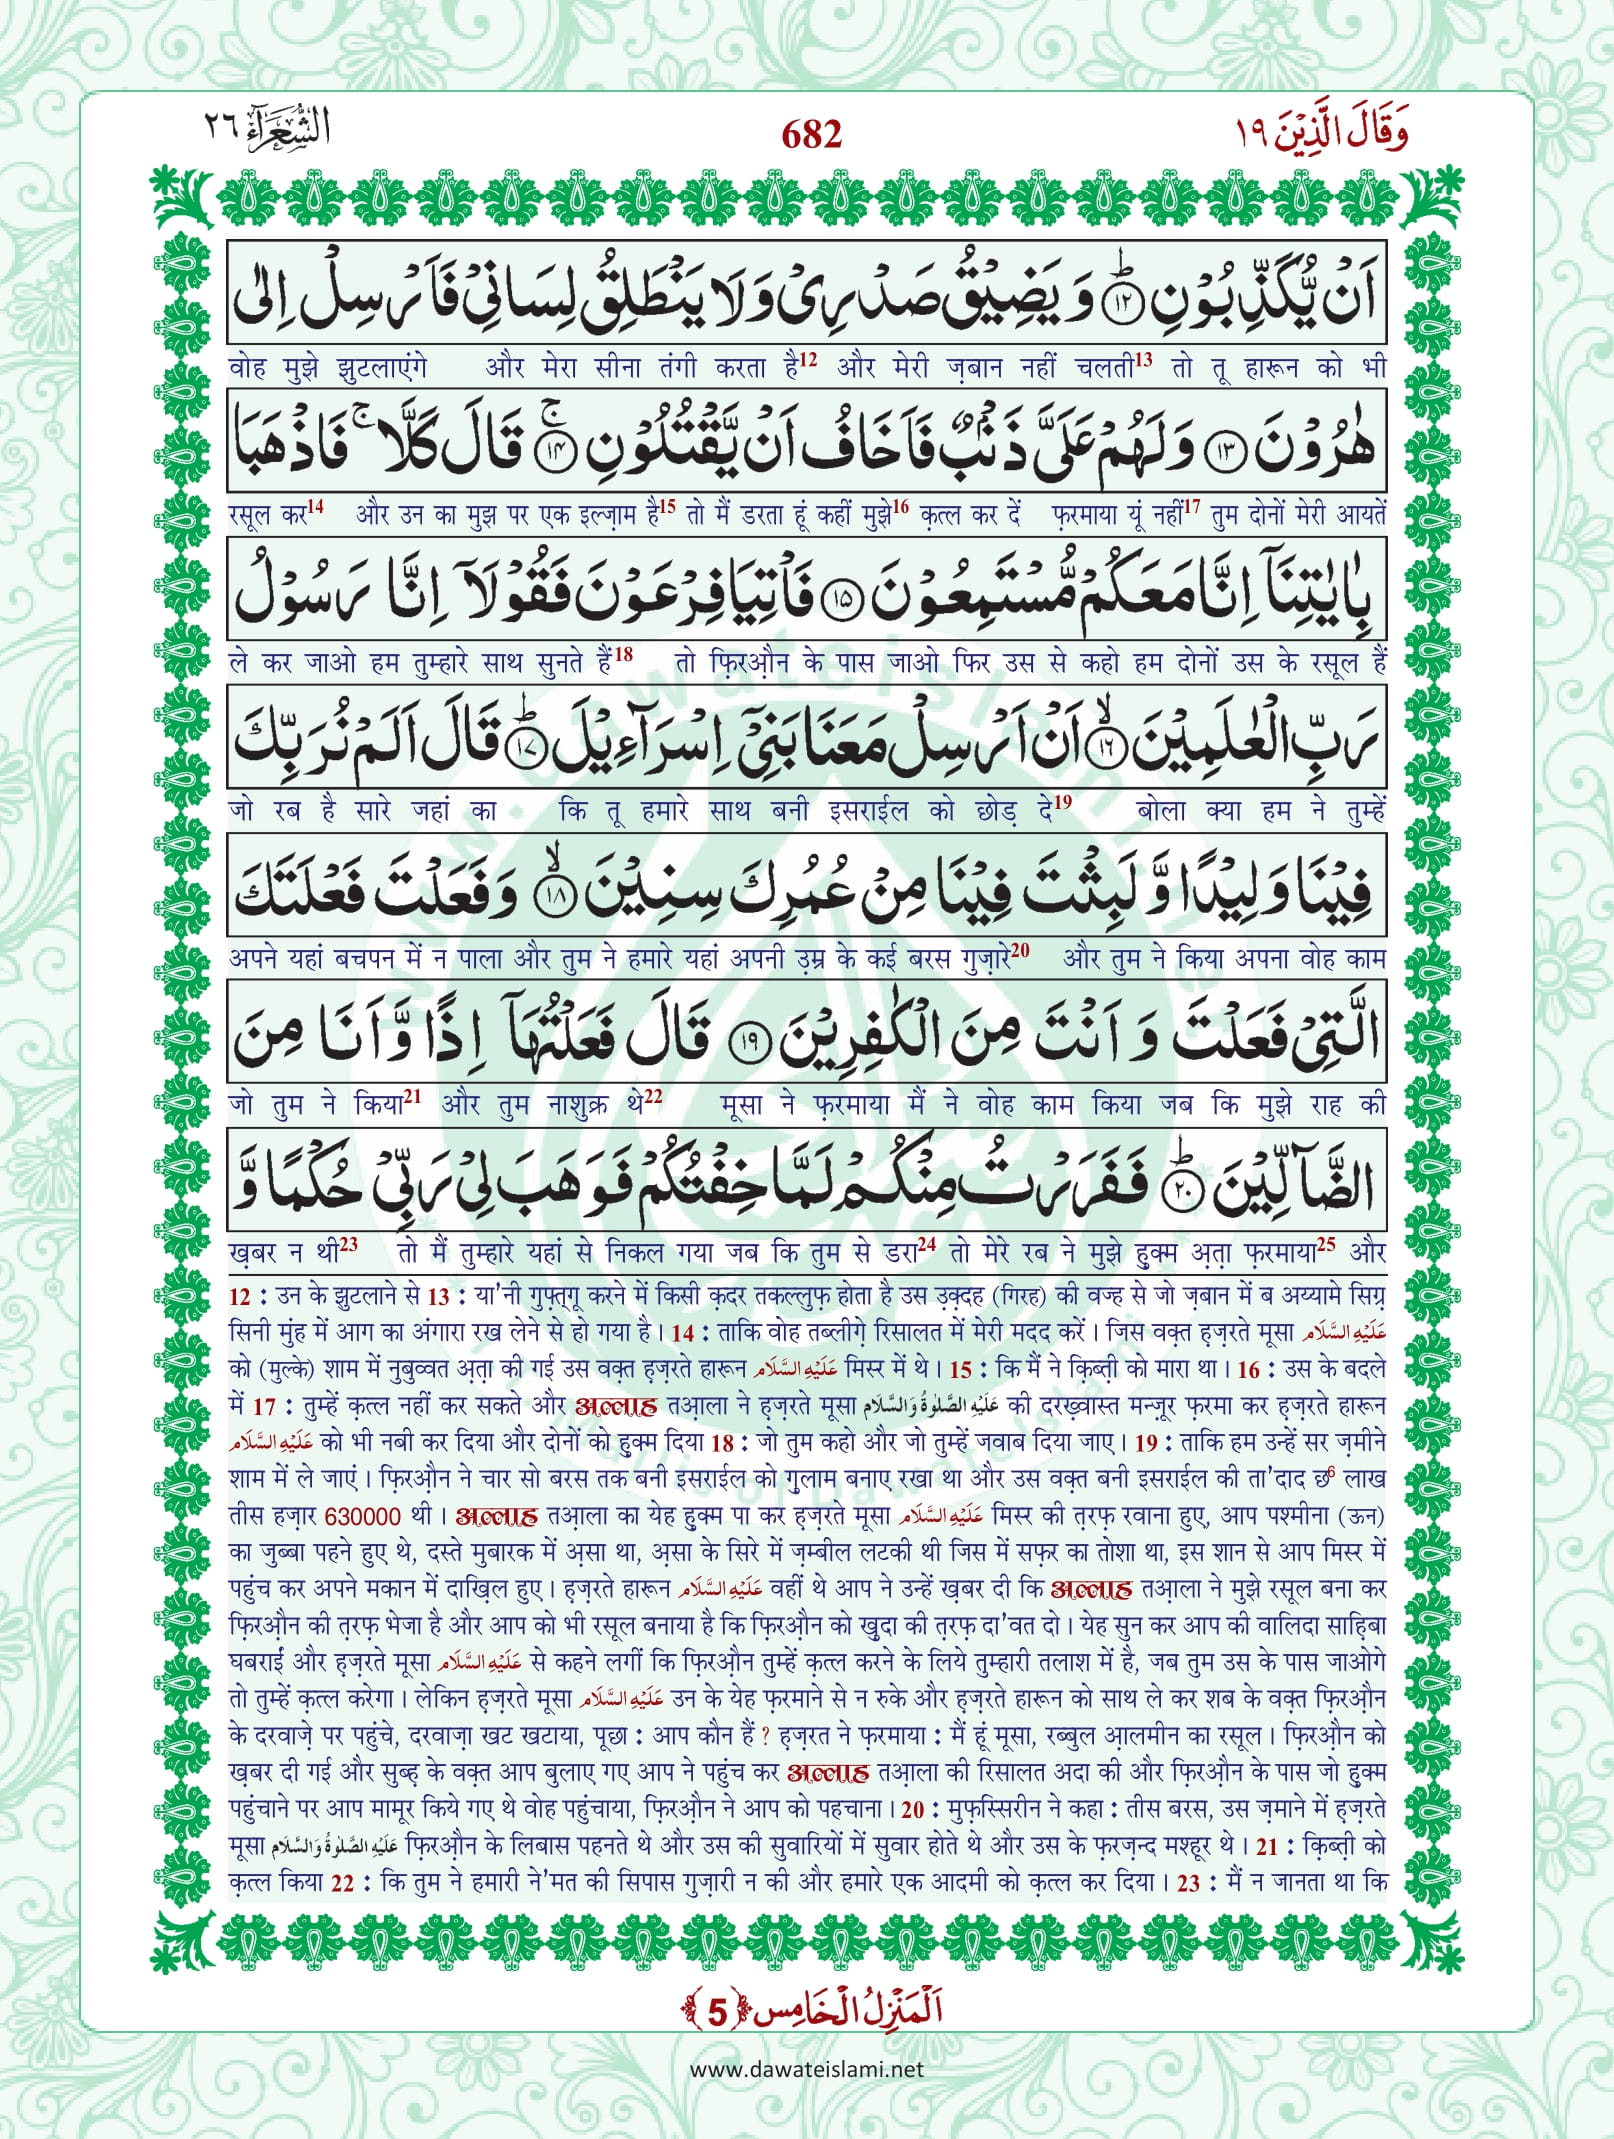 وَقَالَ الَّذِیْنَ ١٩
682
الشُّعَرَآء ٢٦
اَنْ یُّكَذِّبُوْنِ ؕ﴿۱۲﴾ وَ یَضِیْقُ صَدْرِیْ وَ لَا یَنْطَلِقُ لِسَانِیْ فَاَرْسِلْ اِلٰى
वोह मुझे झुटलाएंगे और मेरा सीना तंगी करता है12 और मेरी ज़बान नहीं चलती13 तो तू हारून को भी
هٰرُوْنَ ﴿۱۳﴾ وَ لَهُمْ عَلَیَّ ذَنْۢبٌ فَاَخَافُ اَنْ یَّقْتُلُوْنِ ۚ﴿۱۴﴾ قَالَ كَلَّا ۚ فَاذْهَبَا
रसूल कर14 और उन का मुझ पर एक इल्ज़ाम है15 तो मैं डरता हूं कहीं मुझे16 क़त्ल कर दें फ़रमाया यूं नहीं17 तुम दोनों मेरी आयतें
بِاٰیٰتِنَاۤ اِنَّا مَعَكُمْ مُّسْتَمِعُوْنَ ﴿۱۵﴾ فَاْتِیَا فِرْعَوْنَ فَقُوْلَاۤ اِنَّا رَسُوْلُ
ले कर जाओ हम तुम्हारे साथ सुनते हैं18 तो फ़िरऔ़न के पास जाओ फिर उस से कहो हम दोनों उस के रसूल हैं
رَبِّ الْعٰلَمِیْنَ ۙ﴿۱۶﴾ اَنْ اَرْسِلْ مَعَنَا بَنِیْۤ اِسْرَآءِیْلَ ؕ﴿۱۷﴾ قَالَ اَلَمْ نُرَبِّكَ
जो रब है सारे जहां का कि तू हमारे साथ बनी इसराईल को छोड़ दे19 बोला क्या हम ने तुम्हें
فِیْنَا وَلِیْدًا وَّ لَبِثْتَ فِیْنَا مِنْ عُمُرِكَ سِنِیْنَ ۙ﴿۱۸﴾ وَ فَعَلْتَ فَعْلَتَكَ
अपने यहां बचपन में न पाला और तुम ने हमारे यहां अपनी उ़म्र के कई बरस गुज़ारे20 और तुम ने किया अपना वोह काम
الَّتِیْ فَعَلْتَ وَ اَنْتَ مِنَ الْكٰفِرِیْنَ ﴿۱۹﴾ قَالَ فَعَلْتُهَاۤ اِذًا وَّ اَنَا مِنَ
जो तुम ने किया21 और तुम नाशुक्र थे22 मूसा ने फ़रमाया मैं ने वोह काम किया जब कि मुझे राह की
الضَّآلِّیْنَ ؕ﴿۲۰﴾ فَفَرَرْتُ مِنْكُمْ لَمَّا خِفْتُكُمْ فَوَهَبَ لِیْ رَبِّیْ حُكْمًا وَّ
ख़बर न थी23 तो मैं तुम्हारे यहां से निकल गया जब कि तुम से डरा24 तो मेरे रब ने मुझे हुक्म अ़त़ा फ़रमाया25 और
12 : उन के झुटलाने से 13 : या'नी गुफ़्त्गू करने में किसी क़दर तकल्लुफ़ होता है उस उ़क़्दह (गिरह) की वज्ह से जो ज़बान में ब अय्यामे सिग़्र
सिनी मुंह में आग का अंगारा रख लेने से हो गया है। 14 : ताकि वोह तब्लीग़े रिसालत में मेरी मदद करें। जिस वक़्त ह़ज़रते मूसा عَلَیْہِ السَّلَام
को (मुल्के) शाम में नुबुव्वत अ़त़ा की गई उस वक़्त ह़ज़रते हारून عَلَیْہِ السَّلَام मिस्र में थे। 15 : कि मैं ने क़िब्त़ी को मारा था। 16 : उस के बदले
में 17 : तुम्हें क़त्ल नहीं कर सकते और अल्लाह तआ़ला ने ह़ज़रते मूसा عَلَیْہِ الصَّلٰوۃُ وَالسَّلَام की दरख़्वास्त मन्ज़ूर फ़रमा कर ह़ज़रते हारून
عَلَیْہِ السَّلَام को भी नबी कर दिया और दोनों को हुक्म दिया 18 : जो तुम कहो और जो तुम्हें जवाब दिया जाए। 19 : ताकि हम उन्हें सर ज़मीने
शाम में ले जाएं। फ़िरऔ़न ने चार सो बरस तक बनी इसराईल को ग़ुलाम बनाए रखा था और उस वक़्त बनी इसराईल की ता'दाद छ6 लाख
तीस हज़ार 630000 थी। अल्लाह तआ़ला का येह हुक्म पा कर ह़ज़रते मूसा عَلَیْہِ السَّلَام मिस्र की त़रफ़ रवाना हुए, आप पश्मीना (ऊन)
का जुब्बा पहने हुए थे, दस्ते मुबारक में अ़सा था, अ़सा के सिरे में ज़म्बील लटकी थी जिस में सफ़र का तोशा था, इस शान से आप मिस्र में
पहुंच कर अपने मकान में दाख़िल हुए। ह़ज़रते हारून عَلَیْہِ السَّلَام वहीं थे आप ने उन्हें ख़बर दी कि अल्लाह तआ़ला ने मुझे रसूल बना कर
फ़िरऔ़न की त़रफ़ भेजा है और आप को भी रसूल बनाया है कि फ़िरऔ़न को ख़ुदा की त़रफ़ दा'वत दो। येह सुन कर आप की वालिदा साह़िबा
घबराईं और ह़ज़रते मूसा عَلَیْہِ السَّلَام से कहने लगीं कि फ़िरऔ़न तुम्हें क़त्ल करने के लिये तुम्हारी तलाश में है, जब तुम उस के पास जाओगे
तो तुम्हें क़त्ल करेगा। लेकिन ह़ज़रते मूसा عَلَیْہِ السَّلَام उन के येह फ़रमाने से न रुके और ह़ज़रते हारून को साथ ले कर शब के वक़्त फ़िरऔ़न
के दरवाज़े पर पहुंचे, दरवाज़ा खट खटाया, पूछा : आप कौन हैं ? ह़ज़रत ने फ़रमाया : मैं हूं मूसा, रब्बुल आ़लमीन का रसूल। फ़िरऔ़न को
ख़बर दी गई और सुब्ह़ के वक़्त आप बुलाए गए आप ने पहुंच कर अल्लाह तआ़ला की रिसालत अदा की और फ़िरऔ़न के पास जो हुक्म
पहुंचाने पर आप मामूर किये गए थे वोह पहुंचाया, फ़िरऔ़न ने आप को पहचाना। 20 : मुफ़स्सिरीन ने कहा : तीस बरस, उस ज़माने में ह़ज़रते
मूसा عَلَیْہِ الصَّلٰوۃُ وَالسَّلَام फ़िरऔ़न के लिबास पहनते थे और उस की सुवारियों में सुवार होते थे और उस के फ़रज़न्द मश्हूर थे। 21 : क़िब्त़ी को
क़त्ल किया 22 : कि तुम ने हमारी ने'मत की सिपास गुज़ारी न की और हमारे एक आदमी को क़त्ल कर दिया। 23 : मैं न जानता था कि
اَلْمَنْزِلُ الْخَامِس ﴿5﴾
www.dawateislami.net